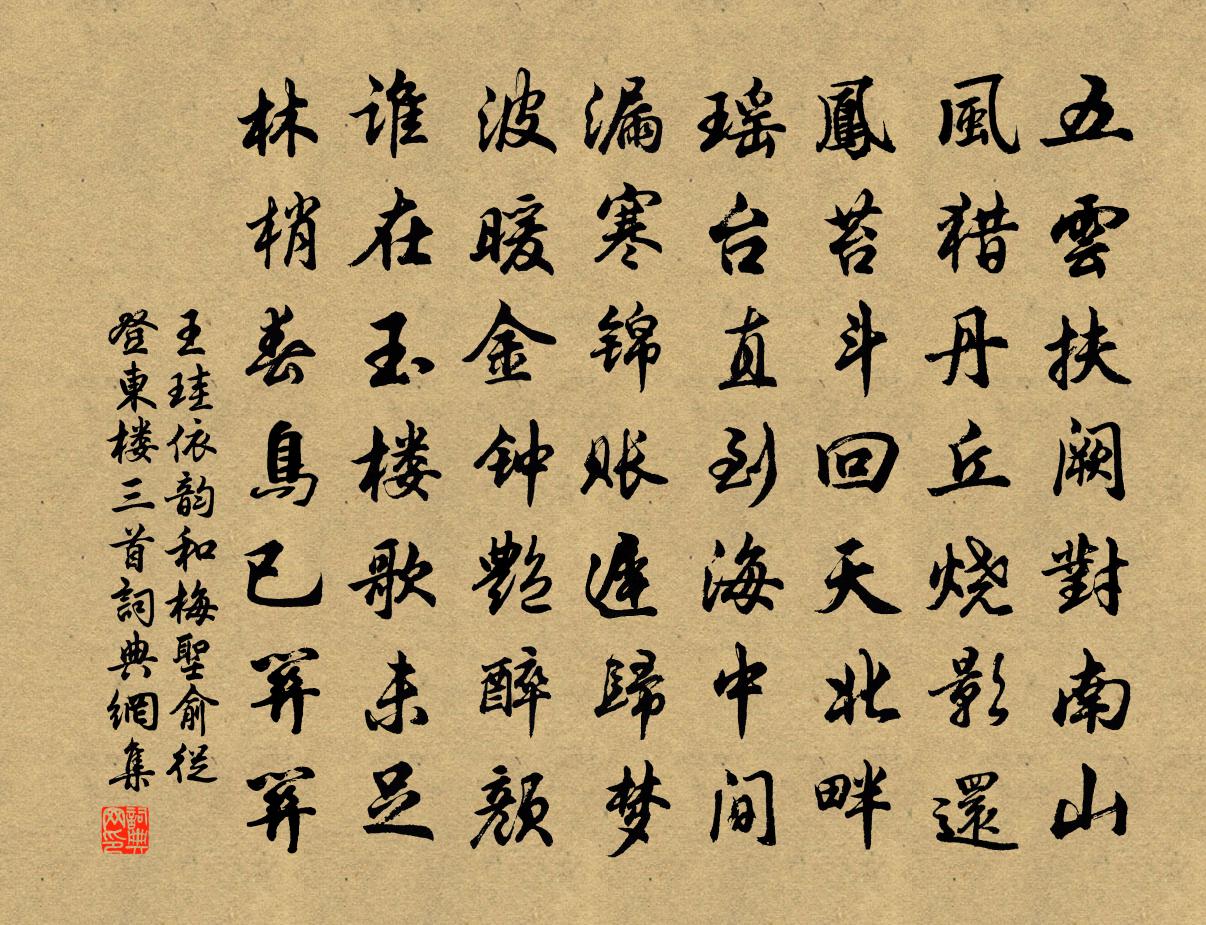 五雲扶阙對南山
風猎丹丘烧影還
鳳苔斗回天北畔
瑶台直到海中间
漏寒锦账遲歸梦
波暖金钟艶醉颜
谁在玉楼歌未足
林梢春鳥已関関
王珪依韵和梅聖俞從
登東楼三首詞典網集
詞典网印